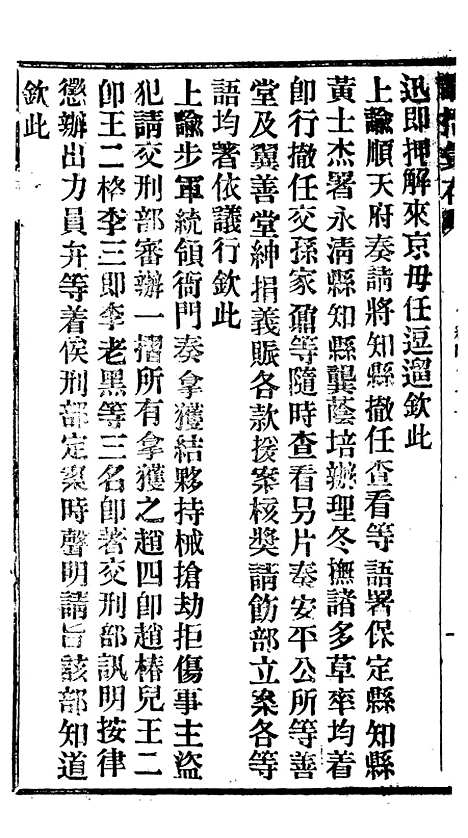 迅即押解來京毋任逗遛欽此
上諭順天府奏請將知縣撤任查看等語署保定縣知縣
黃士杰署永清縣知縣龔蔭培辦理冬撫諸多草率均着
卽行撤任交孫家鼐等隨時查看另片奏安平公所等善
堂及翼善堂紳捐義賑各款援案核獎請飭部立案各等
語均著依議行欽此
上諭步軍統領衙門奏拿獲結夥持械搶劫拒傷事主盜
犯請交刑部審辦一摺所有拿獲之趙四卽趙椿兒王二
卽王二格李三卽李老黑等三名卽著交刑部訊明按律
懲辦出力員弁等着俟刑部定案時聲明請旨該部知道
欽此